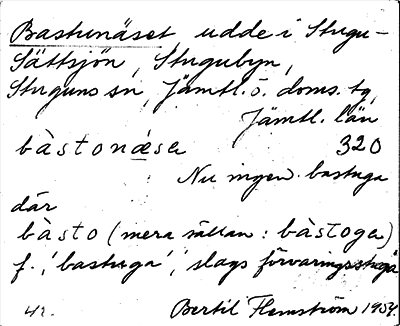 Bastunäset udde i Stugu-
Sättsjön, Stugubyn,
Stuguns sn, Jämtl. ö. doms. tg,
Jämtl. län
bàstonǽsə 320
Nu ingen bastuga
där
bàsto (mera sällan: bàstoga)
f., 'bastuga', slags förvaringsstuga
42. Bertil Flemström 1954.